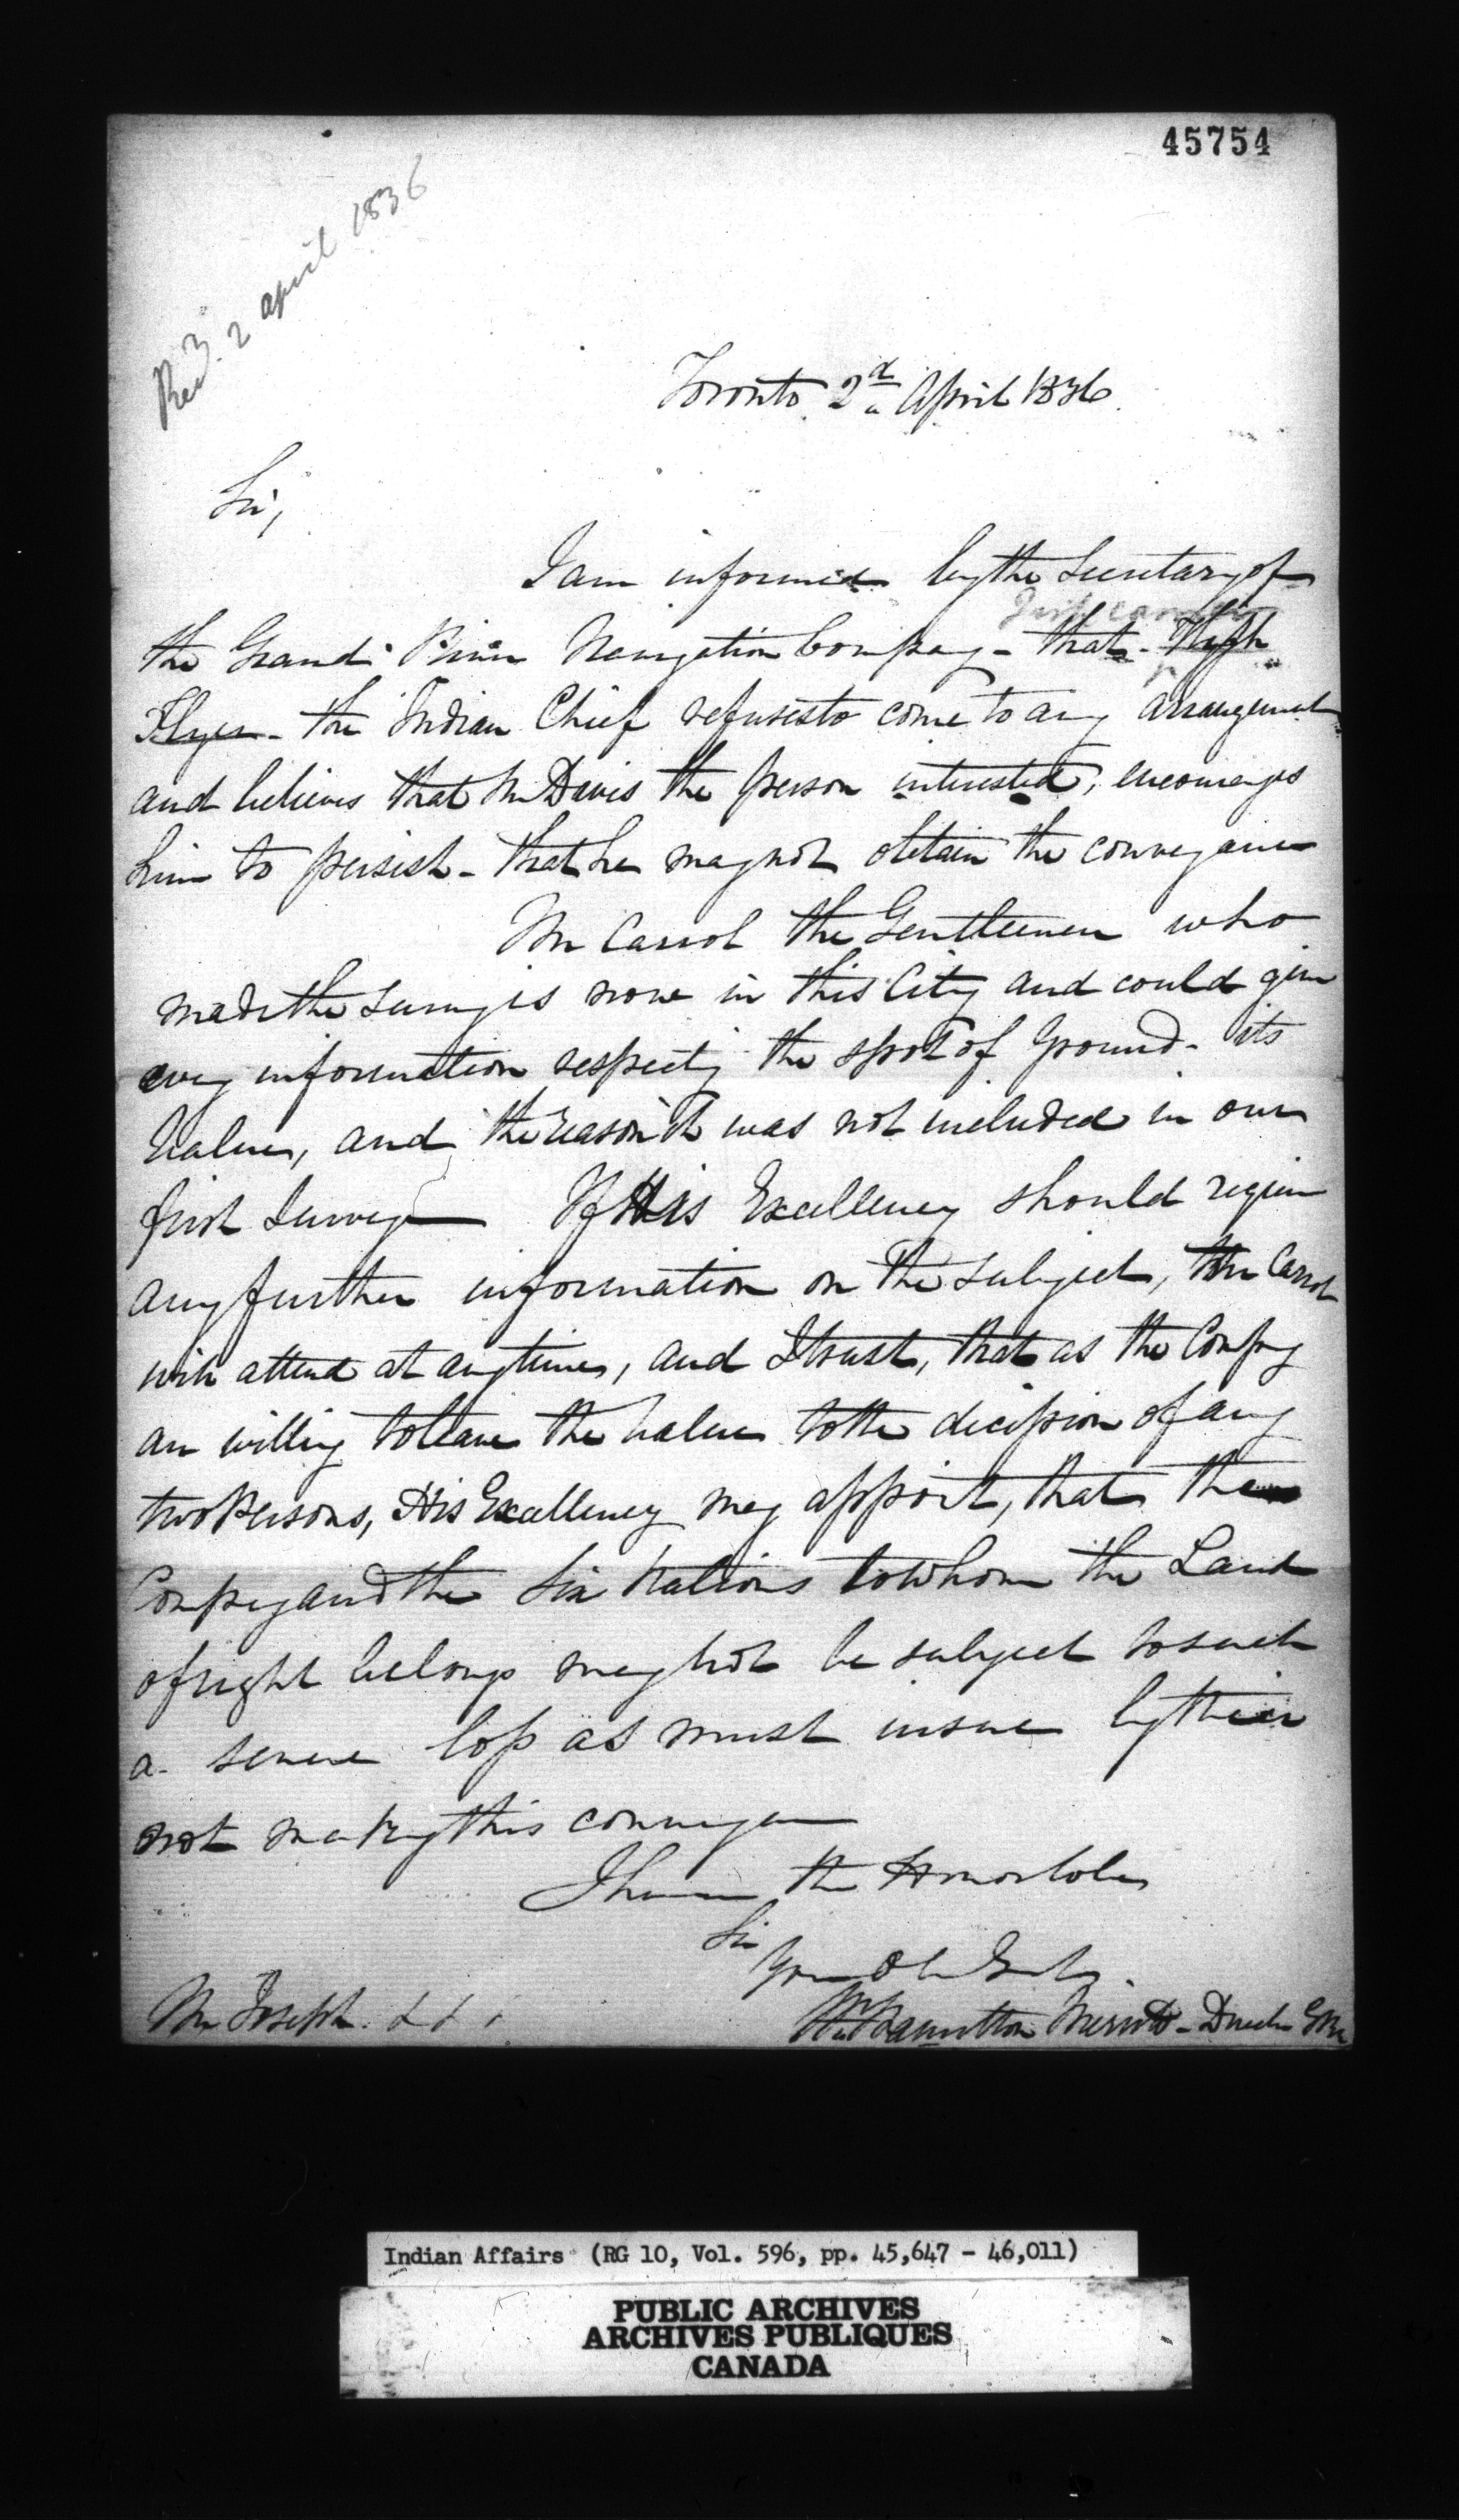 45754
Recd. 2 april 1836
Toronto 2d April 1836
Sir,
I am informed by the Secretary of
the Grand River Navigation Company - that - High
Flyer - the Indian Chief refuses to come to any arrangement
and believes that Mr Davis the person interested, encourages
him to persist - that he may not obtain the conveyance
Mr Carrol the Gentlemen who
made the Survey is now in this City and could give
every information respectg the spot of Ground - its
Value, and the reason it was not included in our
first Survey If His Excellency should require
any further information on the subject, Mr Carrol
will attend at any time, and I trust, that as the Compy
are willing to leave the Value to the decission of any
two Persons, His Excellency may appoint, that the
Compy and the Six Nations to whom the Land
of right belongs may not be subject to such
a severe loss as must insue by their
not making this conveyance
I have the Honor to be
Sir
Your Ob Sert
Wm Hamilton Merritt - Director
Mr Joseph &c &c
Indian Affairs (RG 10, Vol. 596, pp. 45,647 - 46,011)
PUBLIC ARCHIVES
ARCHIVES PUBLIQUES
CANADA